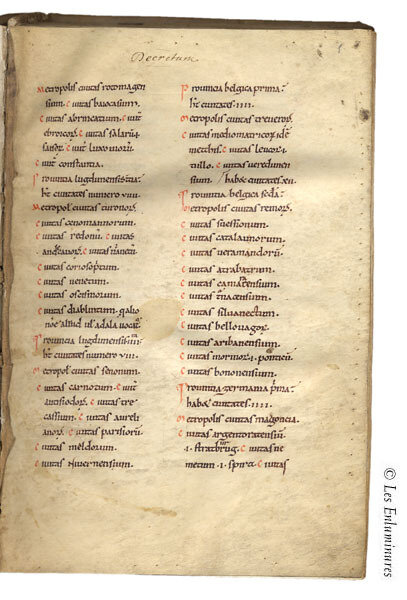 Decretum
Metropolis ciuitas rotomagen
sium. Ciuitas baiocasium.
Ciuitas abrincatum. Ciuit
ebroicoꝝ. Ciuitas salarii. i.
saioꝝ. Ciuit luxouioꝝ.
Ciuit constantia.
Prouintia lugdunensis tertia
ht ciuitates numero viiii
Metropol ciuitas turonoꝝ.
Ciuitas cenomannorum.
Ciuitas redonū. Ciuitas
andegauoꝝ. Ciuitas nānetū.
Ciuitas coriosopitum.
Ciuitas uenetum.
Ciuitas ossismorum.
Ciuitas diablintum.
Prouintia lugdunensium
ht ciuitates numero viii.
Metropol ciuitas senonum.
Ciuitas carnotum. Ciuit
autisiodoꝝ. Ciuitas tre
cassium. Ciuitas aureli
anoꝝ. Ciuitas parisiorū
Ciuitas meldorum.
Ciuitas niuernensium.
Prouintia belgica prima
ht ciuitates. iiii.
Metropolis ciuitas treueroꝝ.
Ciuitas mediomatricoꝝ idē
mettis. Ciuitas leucoꝝ. i.
tullo. Ciuitas ueredunen
sium / habet ciuitates. xii.
Prouintia belgica scda.
Metropolis ciuitas remoꝝ.
Ciuitas suessionum.
Ciuitas catalaunorum.
Ciuitas ueramandorū.
Ciuitas atrabatrum.
Ciuitas camaracensium.
Ciuitas tornacensium.
Ciuitas siluanectum.
Ciuitas bellouagoꝝ.
Ciuitas ambanensium.
Ciuitas morinoꝝ. i. ponticū.
Ciuitas bononensium.
Prouintia germania prima.
habet ciuitates. iiii.
Metropolis ciuitas magoncia.
Ciuitas argentoratensiū
.i. stratburg. Ciuitas ne
metum. i. spira. Ciuitas
© Les Enluminures